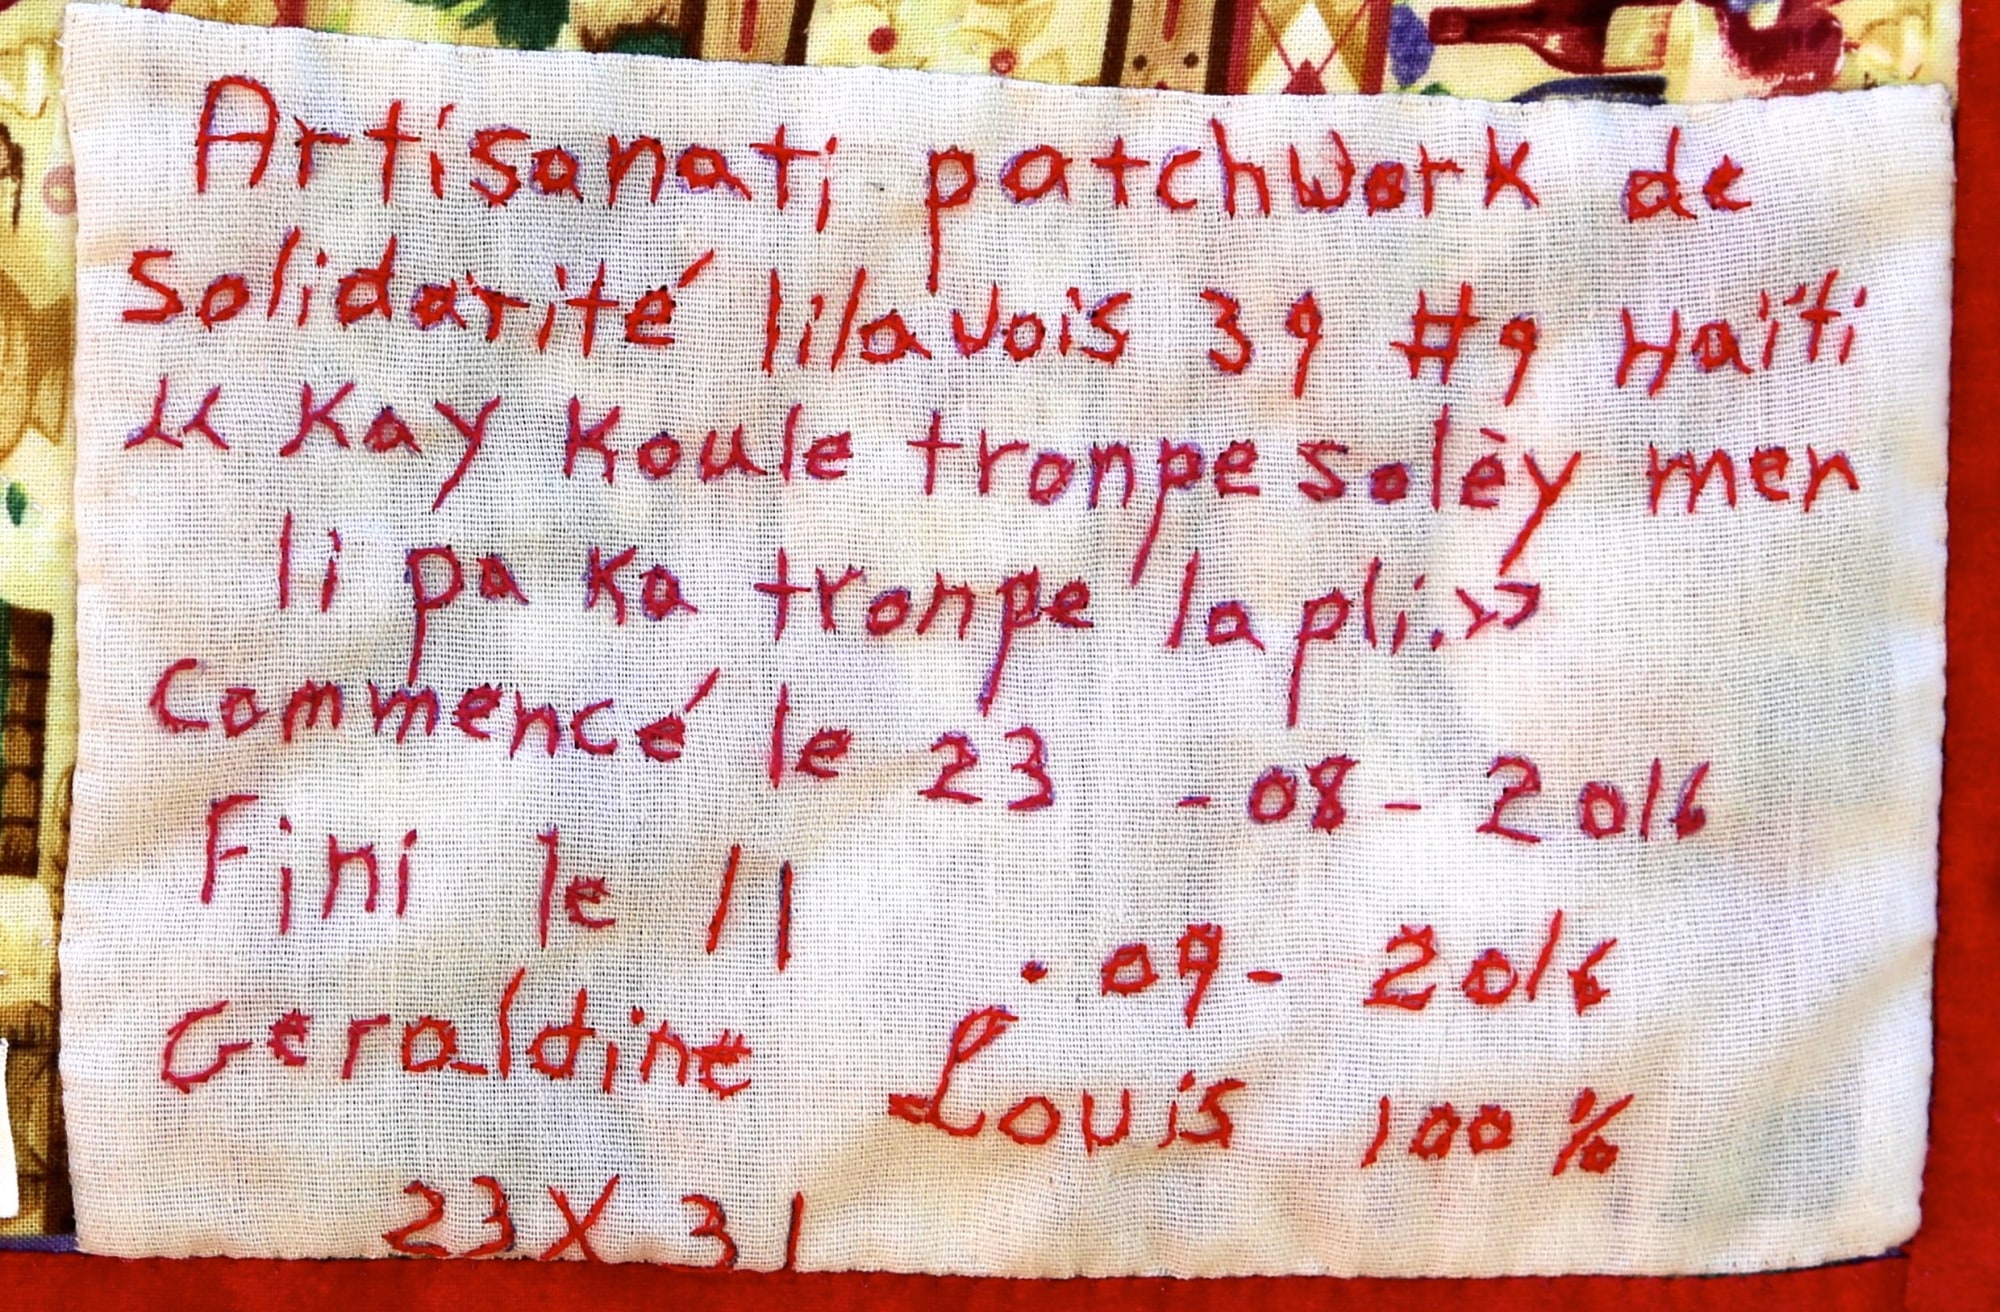 Artisanati patchwork de
Solidarité lilavois 39 #9 Haïti
« Kay Koule tronpe solèy men
li pa ka tronpe lapli. »
Commencé le 23 - 08 - 2016
Fini le 11 . 09 - 2016
Geraldine Louis 100 %
23 X 31